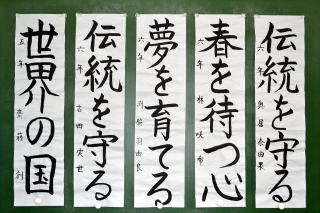 伝統を守る
六年
春を待つ心
六年
夢を育てる
六年
伝統を守る
六年 吉田
世界の国
五年 斎藤 利